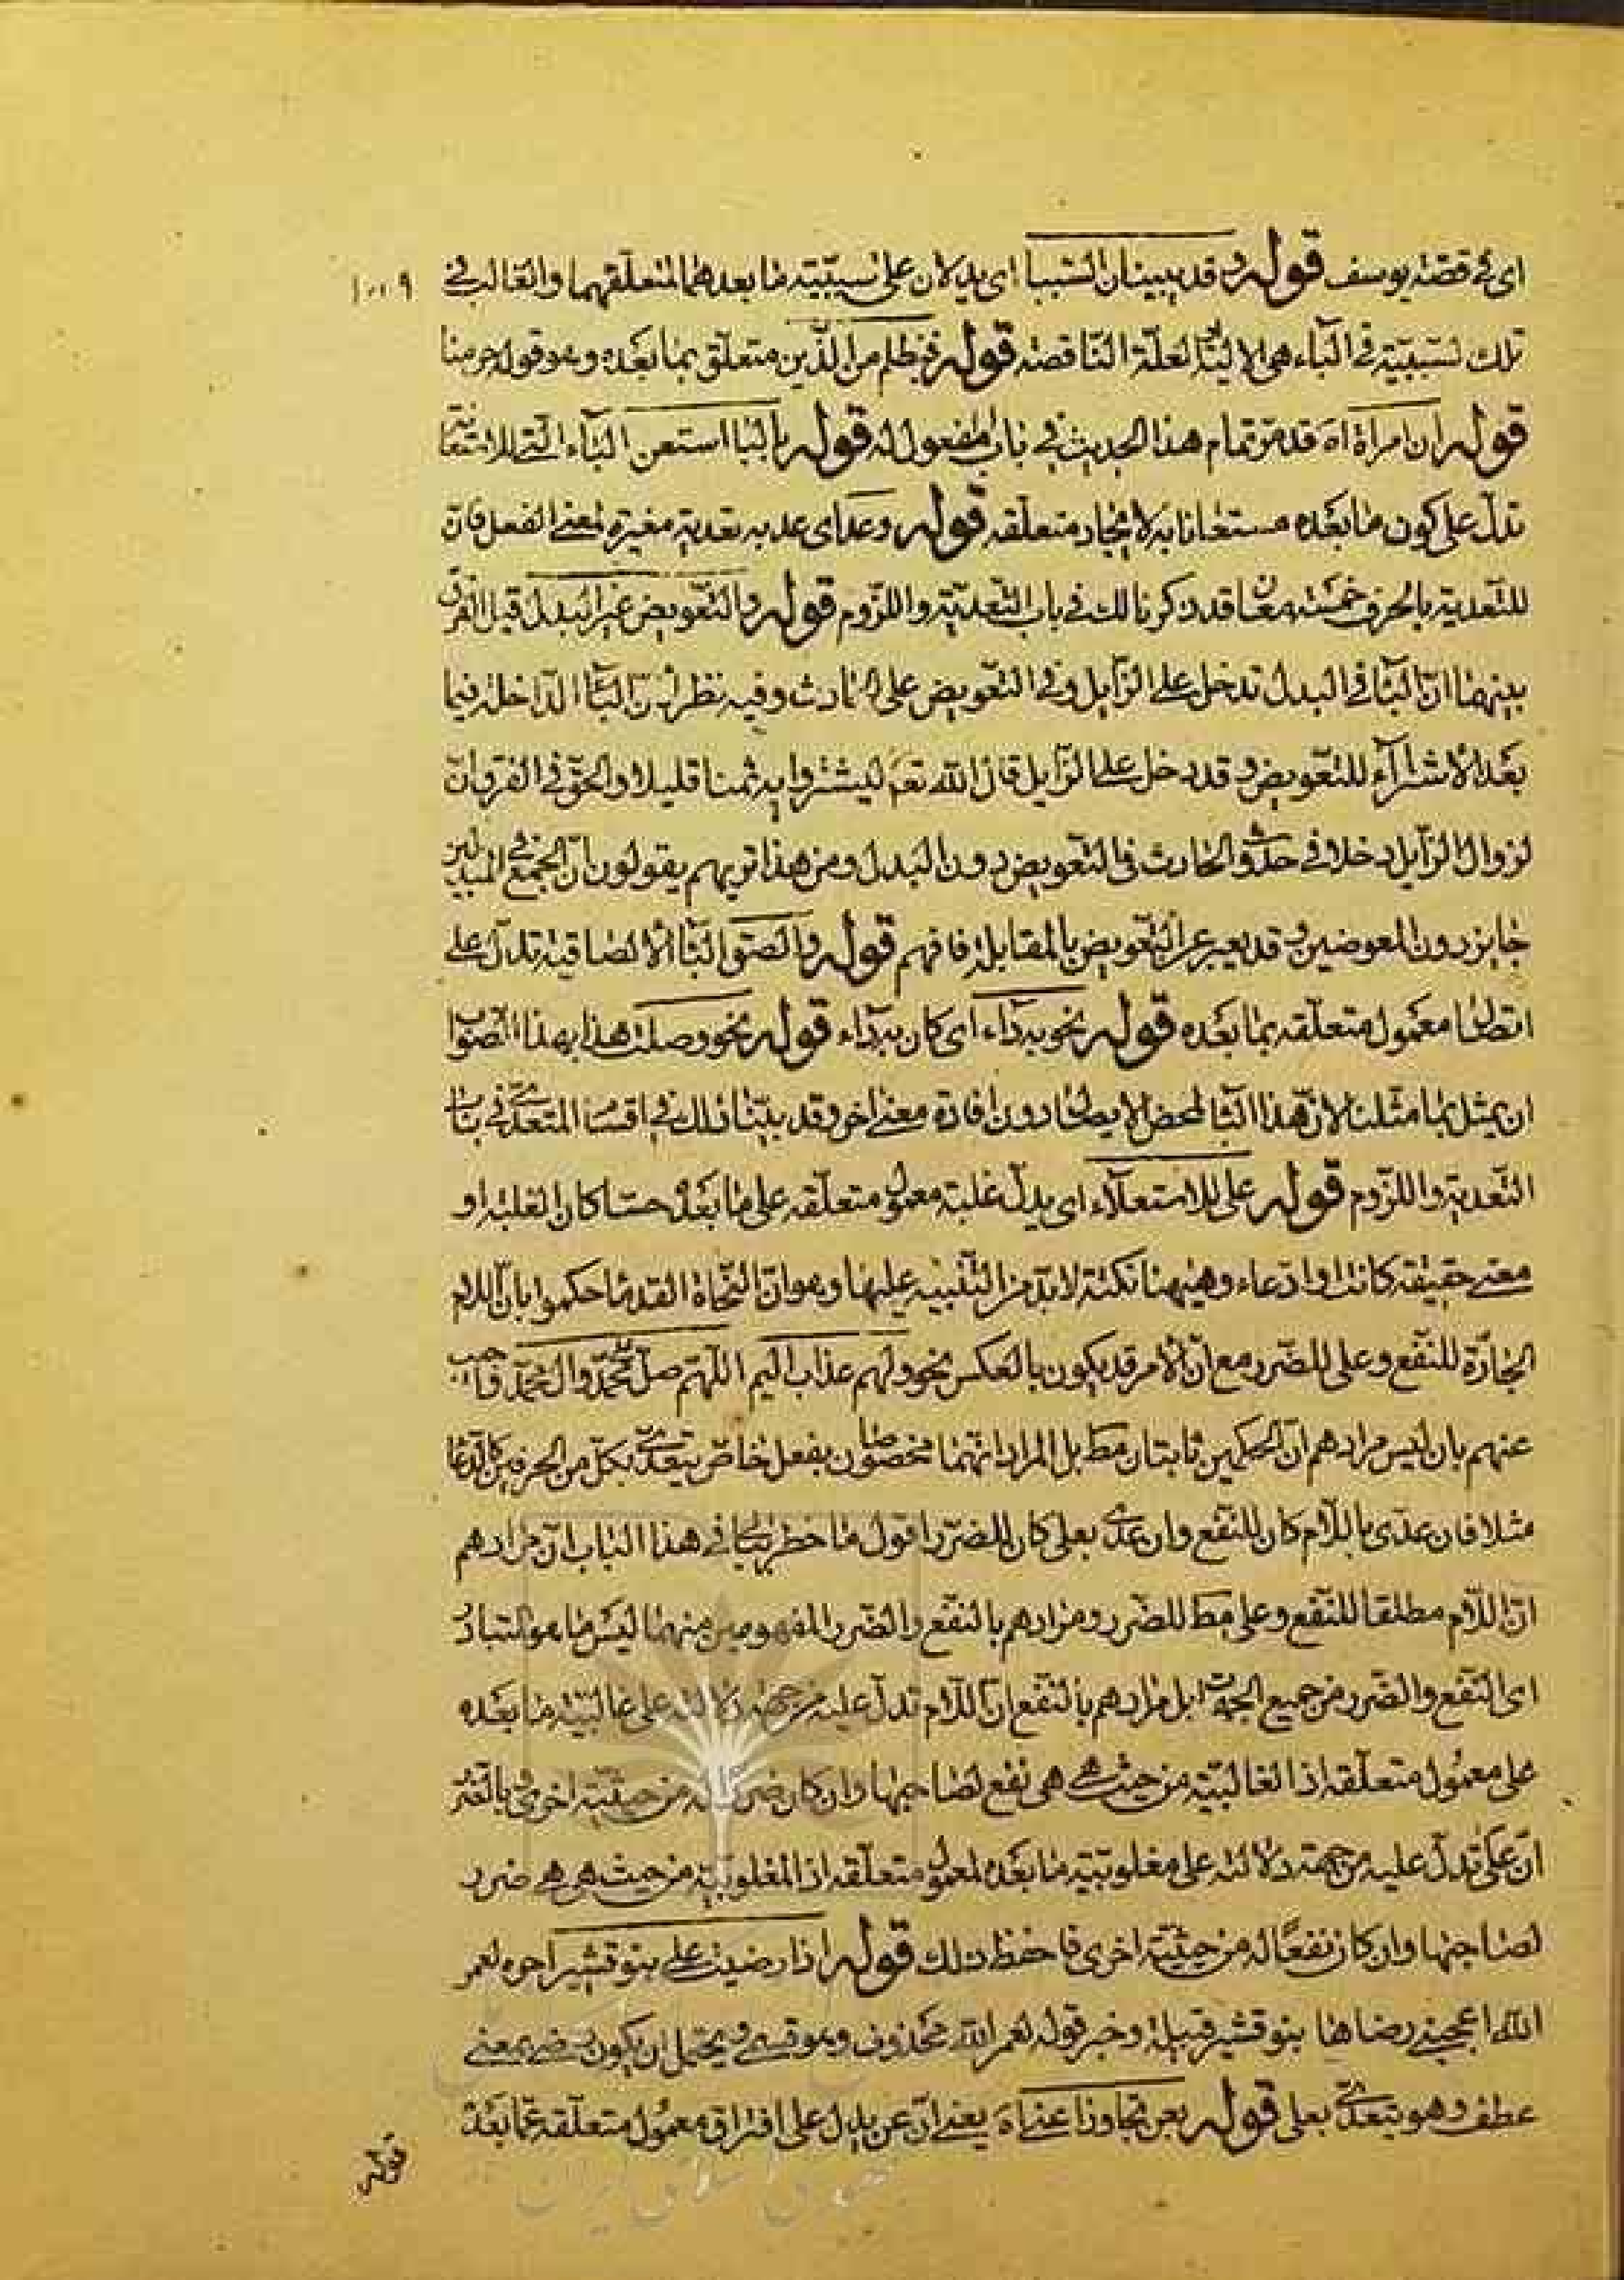 اى فى قصة يوسف قوله وقد يبينان السببا اى يدلان على سببية ما بعدهما لمتعلقهما والغالب فى
تلك السببية فى الباء هى لا ليته لعلة الناقصة قوله فبظلم من الذين متعلق بما بعده وهو قوله حرمنا
قوله ان امراة اه قد مر تمام هذا الحديث فى باب المفعول له قوله بالبا استعن الباء التى للاستعانة
تدل على كون ما بعده مستعانا به لايجاد متعلقه قوله وعد اى عد به تعدية مغيرة لمعنى الفعل فان
للتعدية بالحرف خمسة معان قد ذكرنا لك فى باب التعدية واللزوم قوله والتعويض غير البدل قيل الفرق
بينهما ان البا فى البدل تدخل على الزايل وفى التعويض على الحادث وفيه نظر لان البا الداخلة فيما
بعد الاشرآء للتعويض وقد دخل على الزايل قال الله تعم ليشتروا به ثمنا قليلا والحق فى الفرق ان
لزوال الزايل دخلا فى حدوث الحادث فى التعويض دون البدل ومن هذا تريهم يقولون ان الجمع فى المبدلين
جايز دون المعوضين وقد يعبر عن التعويض بالمقابلة فافهم قوله والصق البا الالصاقية تدل على
اتصال معمول متعلقه بما بعده قوله نحو به داء اى كان به داء قوله نحو وصلت هذا بهذا الصواب
ان يمثل بما مثلنا لان هذا البا لمحض الايصال دون افادة معنى اخر وقد بينا ذلك فى اقسا المتعدى فى باب
التعدية واللزوم قوله على للاستعلاء اى يدل غلبة معمول متعلقه على ما بعده حسا كان الغلبة او
معنى حقيقة كانت او ادعاء وهيهنا نكتة لا بد من التنبيه عليها وهو ان النحاة القدما حكموا بان اللام
الجارة للنفع وعلى للضرر مع ان الامر قد يكون بالعكس نحو ولهم عذاب اليم اللهم صل على محمد وال محمد فاجيب
عنهم بان ليس مرادهم ان الحكمين ثابتان مط بل المراد انهما مخصوصان بفعل خاص يتعدى بكل من الحرفين كالدعا
مثلا فان عدى باللام كان للنفع وان عدى بعلى كان للضرر اقول ما خطر ببالى فى هذا الباب ان مرادهم
ان اللام مطلقا للنفع وعلى مط للضرر ومرادهم بالنفع والضرر المفهومين منهما ليس ما هو المتبادر
اى النفع والضرر من جميع الجهات بل مرادهم بالنفع ان اللام تدل عليه من جهة دلالته على غالبية ما بعده
على معمول متعلقه اذ الغالبية من حيث هى هى نفع لصاحبها وان كان ضررا له من حيثية اخرى وبالضرر
ان على تدل عليه من جهة دلالته على مغلوبية ما بعده لمعمول متعلقه اذ المغلوبية من حيث هى هى ضرر
لصاحبها وان كان نفعا له من حيثية اخرى فاحفظ ذلك قوله اذا رضيت على بنو قشير اخره لعمر
الله اعجبنى رضاها بنو قشير قبيلة وخبر قوله لعمر الله محذوف وهو قسمى ويحتمل ان يكون رضى بمعنى
عطف وهو يتعدى بعلى قوله بعن تجاوزا عنى اه يعنى ان عن يدل على افتراق معمول متعلقه عما بعده
قوله